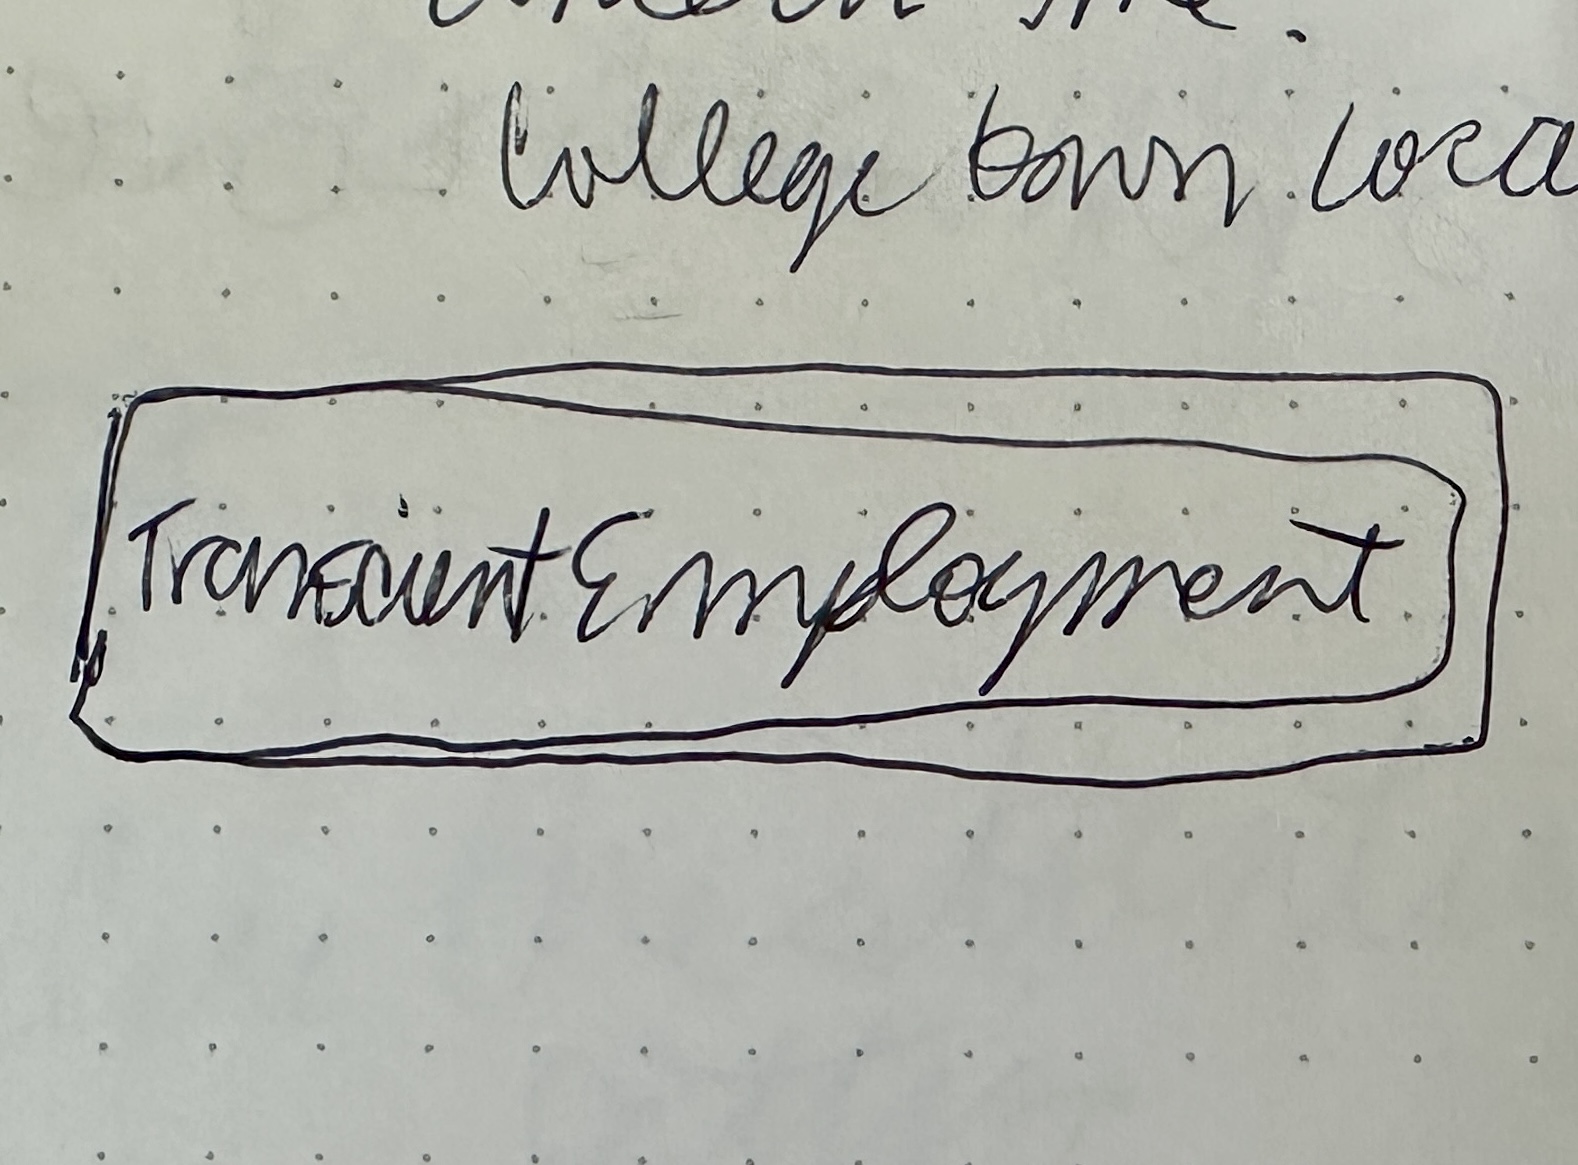 College town loca
Transient Employment